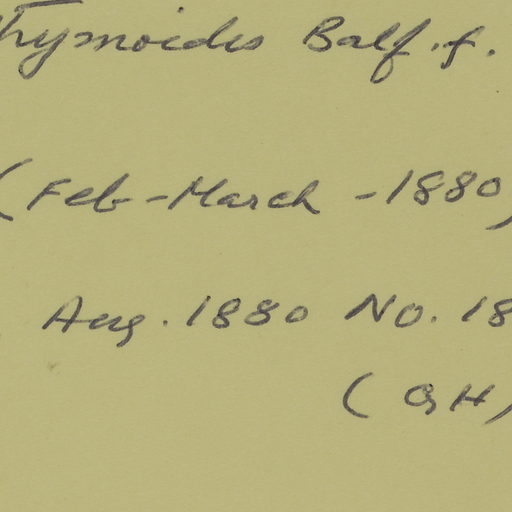 thymoides Balf.f.
(Feb-March -1880)
Aug. 1880 No. 18
(GH)